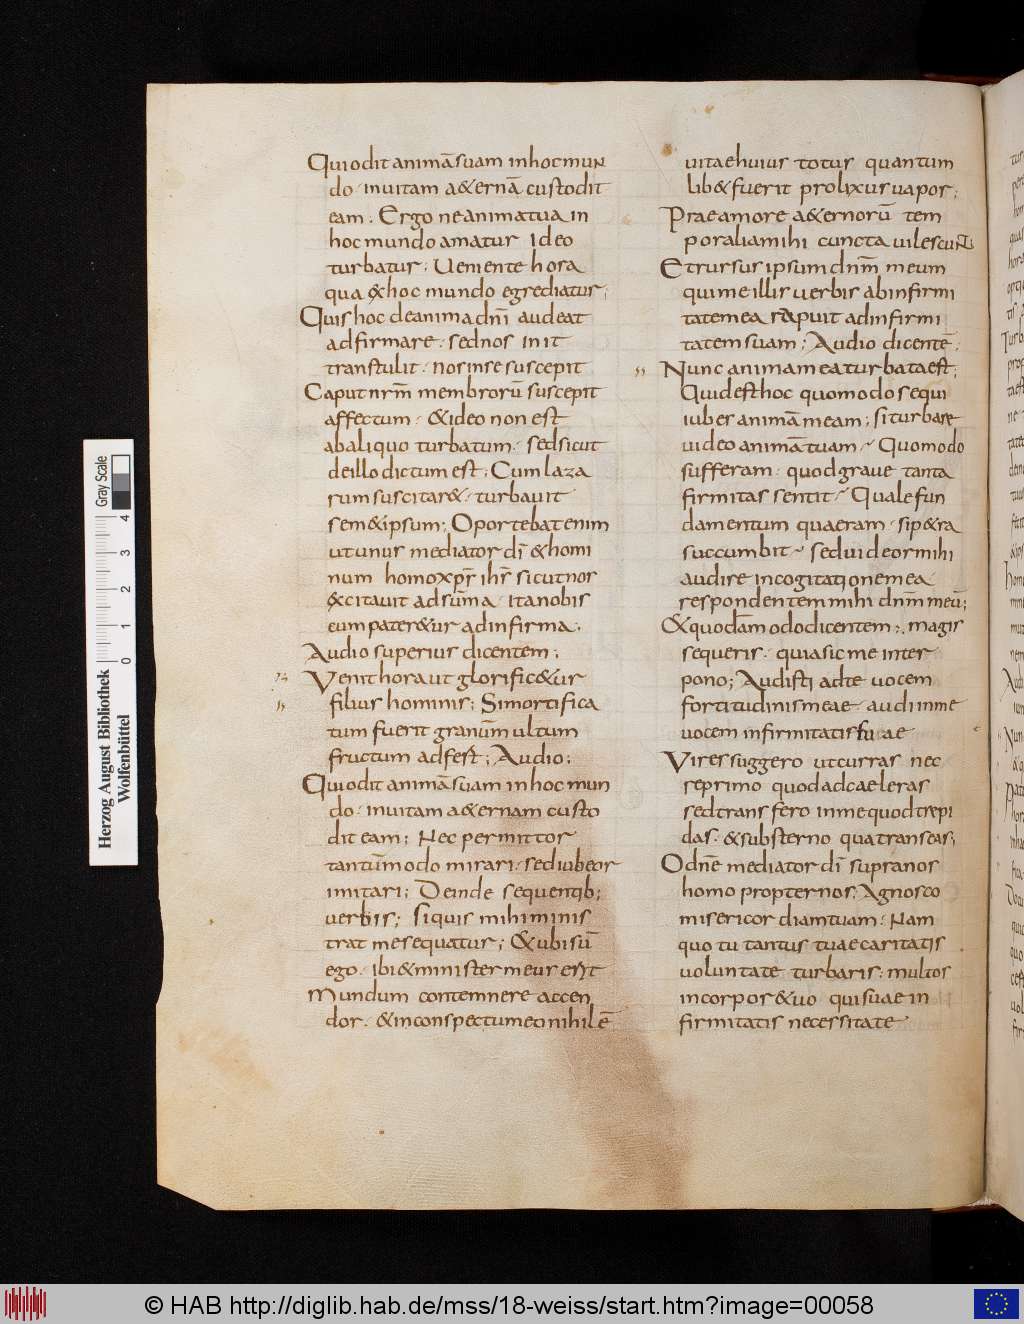 Qui odit animā suam in hoc mun
do · in uitam a&ernā custodit
eam . Ergo ne anima tua in
hoc mundo amatur Ideo
turbatur ; Ueniente hora
qua exhoc mundo egrediatur ;
Quis hoc de anima dn̄i audeat
adfirmare · sed nos in it
transtulit · nos in se suscepit
Caput nr̄m membrorū suscepit
affectum · & ideo non est
ab aliquo turbatum · sed sicut
de illo dictum est ; Cum laza
rum suscitar& · turbauit
sem&ipsum ; Oportebat enim
ut unus mediator dī & homi
num homo xp̄s ih̄s sicut nos
excitauit ad sūma · ita nobis
cum pater&ur ad infirma ·
Audio superius dicentem ;
Venit hora ut glorific&ur
filius hominis ; Si mortifica
tum fuerit granūm ultum
fructum adfest ; Audio ;
Qui odit animā suam in hoc mun
do · in uitam a&ernam custo
dit eam ; Nec permittor
tantūmodo mirari · sed iubeor
imitari ; Deinde sequentib ;
uerbis ; si quis mihi minis
trat me sequatur ; & ubi sū
ego · ibi & minister meus erit
Mundum contemnere accen
dor · & in conspectu meo nihil ē
uitae huius totus quantum
lib& fuerit prolixus uapor ;
Prae amore a&ernorū tem
poralia mihi cuncta uilescunt
Et rursus ipsum dn̄m meum
qui me illis uerbis ab infirmi
tate mea rapuit ad infirmi
tatem suam ; Audio dicentē ·
Nunc anima mea turbata est ;
Quid est hoc quomodo sequi
iubes animā meam ; si turbare
uideo animā tuam · Quomodo
sufferam · quod graue tanta
firmitas sentit · Quale fun
damentum quaeram · si p&ra
succumbit · sed uideor mihi
audire in cogitatione mea
respondentem mihi dn̄m meū ;
& quodām odo dicentem ; magis
sequeris · quia sic me inter
pono ; Audisti ad te uocem
fortitudinis meae · audi in me
uocem infirmitatis tuae
Vires suggero ut curras nec
reprimo quod adcaeleras
sed transfero in me quod trepi
das · & substerno qua transeas ;
O dn̄e mediator dī supra nos
homo propter nos ; Agnosco
misericordiam tuam ; Nam
quo tu tantus tuae caritatis
uoluntate turbaris ; multos
in corpore tuo qui suae in
firmitatis necessitate
Gray Scale
0 1 2 3 4
Herzog August Bibliothek
Wolfenbüttel
© HAB http://diglib.hab.de/mss/18-weiss/start.htm?image=00058